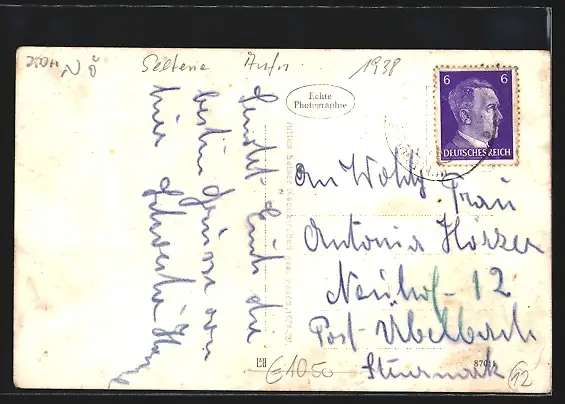 NÖ
Seltene
1938
Echte
Photographie
6 6
DEUTSCHES REICH
Sendet Euch die
besten Grüsse von
hier Schwester
An Wolg Frau
Antonia Hörzer
Neuhof-12
Post-Übelbach
Steiermark
€10,50
12